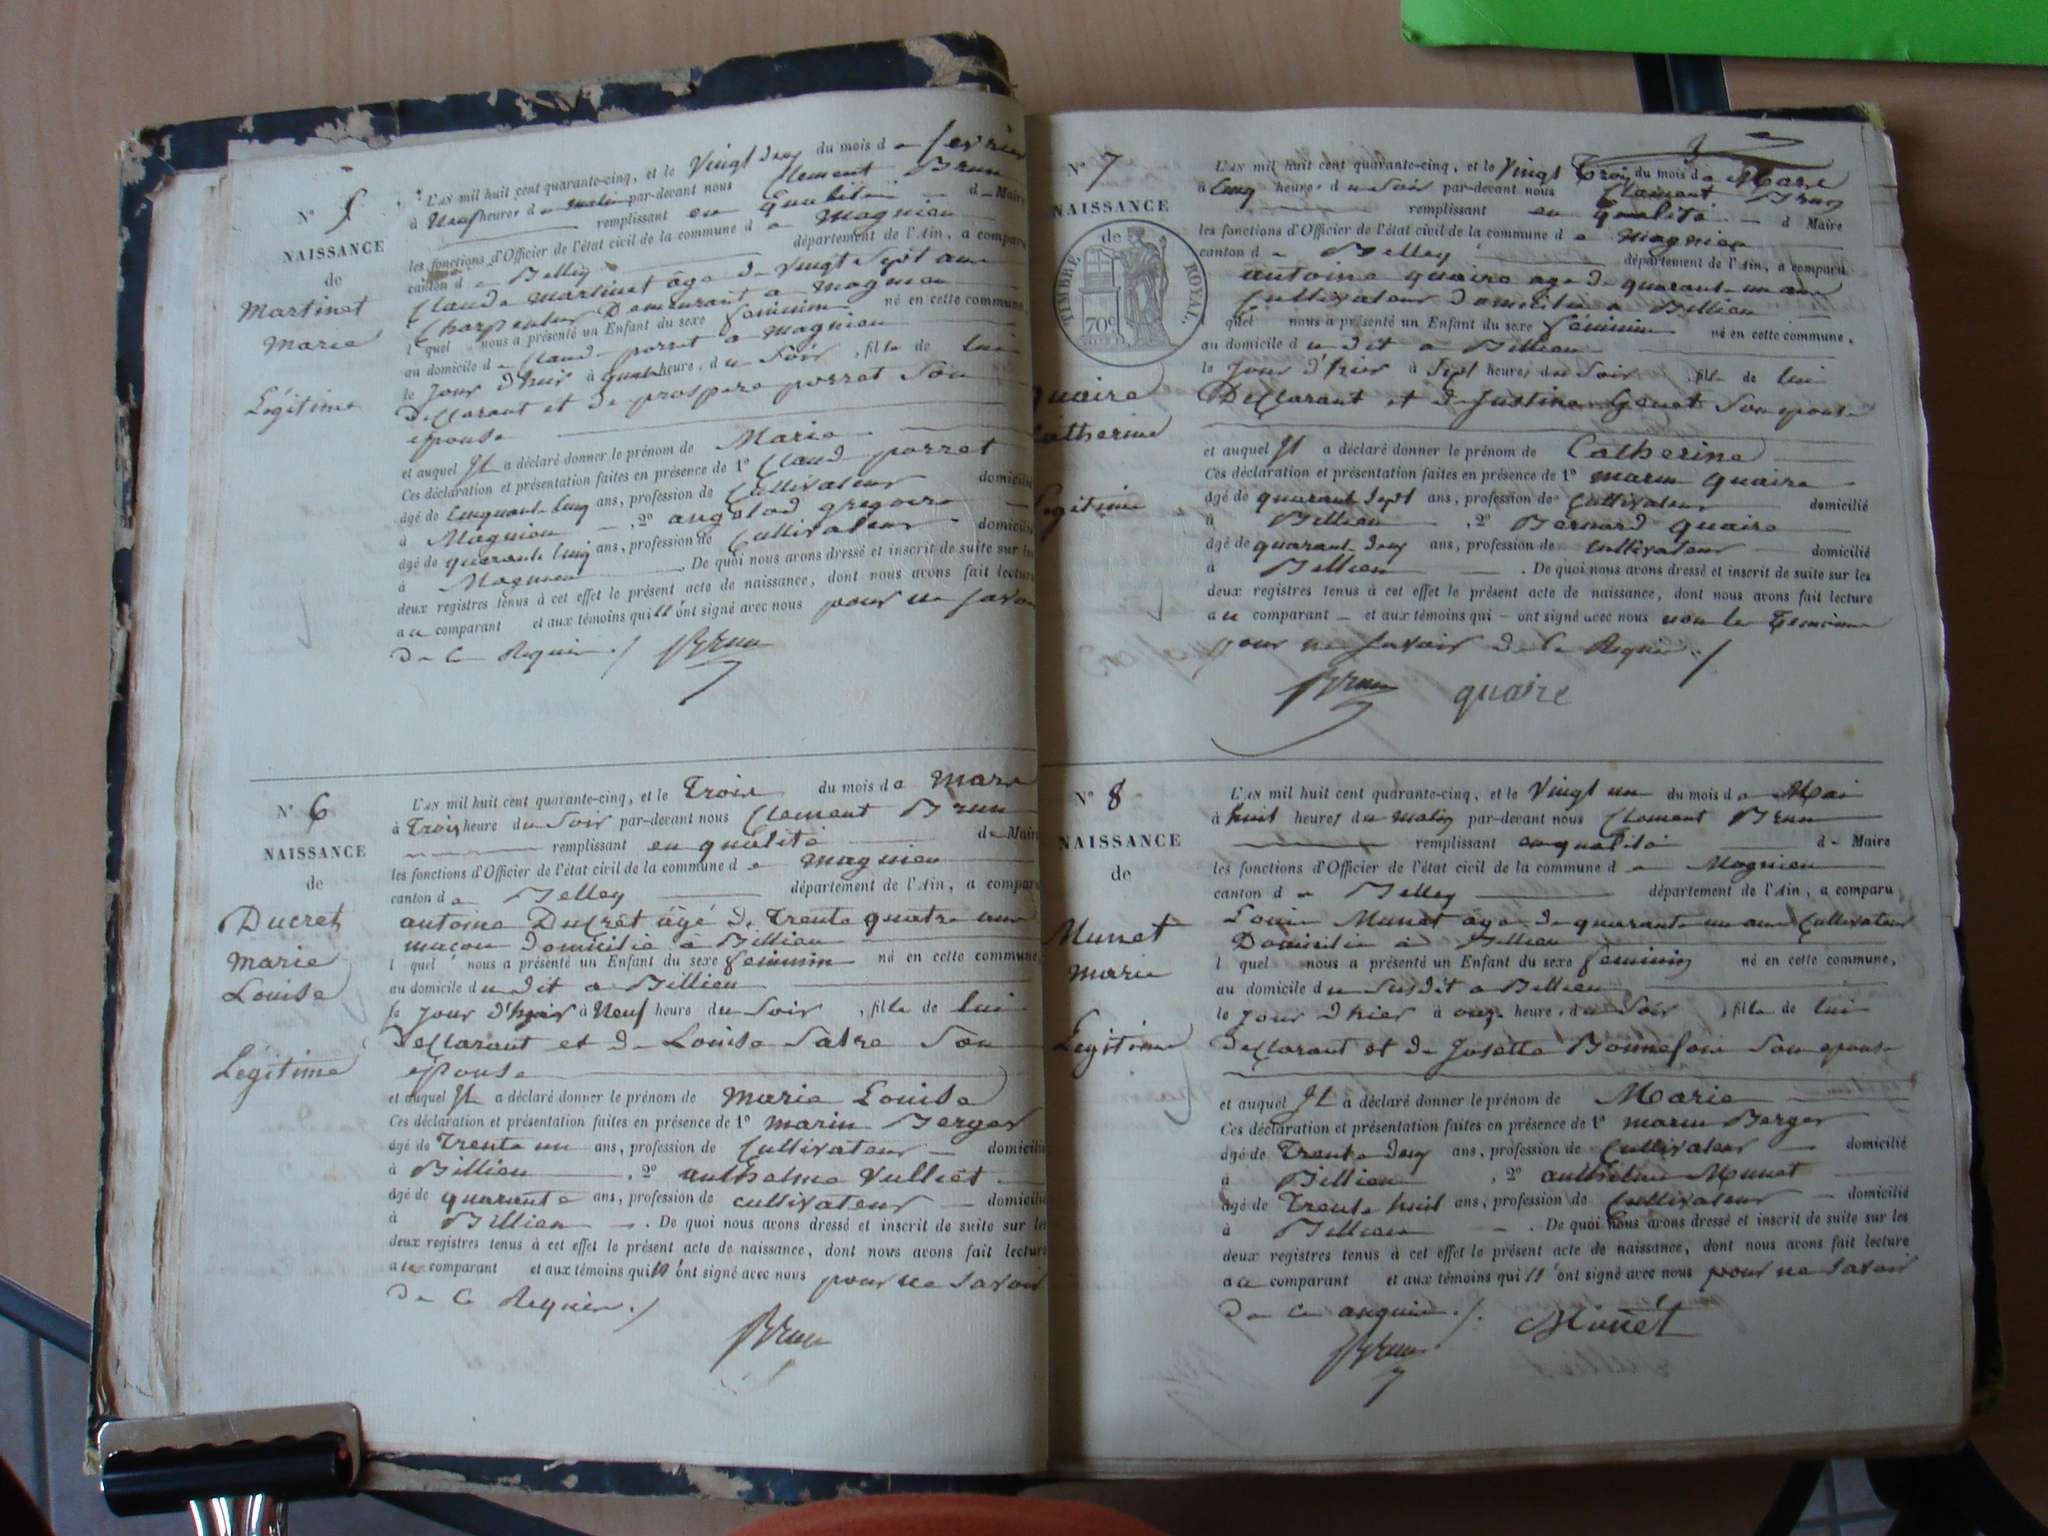 N° 5
NAISSANCE
de
Martinet
Marie
Légitime
L'AN mil huit cent quarante-cinq, et le Vingt deux du mois de fevrier
à Neuf heures du matin par-devant nous Clement Brun
remplissant en qualité de Maire
les fonctions d'Officier de l'état civil de la commune de Magnieu
canton de Belley département de l'Ain, a comparu
Claude Martinet âgé de vingt Sept ans
Charpentier Demeurant a Magnieu
lequel nous a présenté un Enfant du sexe feminin né en cette commune,
au domicile de Claude porret a Magnieu
le Jour d'hier à quatre heure, du Soir, fille de lui
Declarant et de prospere porret Son
epouse
et auquel Il a déclaré donner le prénom de Marie
Ces déclaration et présentation faites en présence de 1° Claude porret
âgé de Cinquante Cinq ans, profession de Cultivateur domicilié
à Magnieu, 2° gregoire
âgé de quarante Cinq ans, profession de Cultivateur domicilié
à Magnieu. De quoi nous avons dressé et inscrit de suite sur les
deux registres tenus à cet effet le présent acte de naissance, dont nous avons fait lecture
au comparant et aux témoins qui n'ont signé avec nous pour ne Savoir
de ce Requis ./ Brun
N° 6
NAISSANCE
de
Ducret
Marie
Louise
Légitime
L'AN mil huit cent quarante-cinq, et le Trois du mois de Mars
à Trois heure du Soir par-devant nous Clement Brun
remplissant en qualité de Maire
les fonctions d'Officier de l'état civil de la commune de Magnieu
canton de Belley département de l'Ain, a comparu
antoine Ducret âgé de Trente quatre ans
maçon domicilié a Billieu
lequel nous a présenté un Enfant du sexe feminin né en cette commune,
au domicile du dit a Billieu
le Jour d'hier à Neuf heure du Soir, fille de lui
Declarant et de Louise Son
epouse
et auquel Il a déclaré donner le prénom de Marie Louise
Ces déclaration et présentation faites en présence de 1° marin Berger
âgé de Trente un ans, profession de Cultivateur domicilié
à Billieu, 2° anthelme Vulliet
âgé de quarante ans, profession de cultivateur domicilié
à Billieu. De quoi nous avons dressé et inscrit de suite sur les
deux registres tenus à cet effet le présent acte de naissance, dont nous avons fait lecture
au comparant et aux témoins qui n'ont signé avec nous pour ne Savoir
de ce Requis ./
Brun
3
N° 7
NAISSANCE
de
TIMBRE ROYAL.
70 c
Quaire
Catherine
Legitime
L'AN mil huit cent quarante-cinq, et le Vingt Trois du mois de Mars
à Cinq heures du Soir par-devant nous Clement Brun
remplissant en qualité d Maire
les fonctions d'Officier de l'état civil de la commune de Magnieu
canton de Belley département de l'Ain, a comparu
antoine quaire age de quarante un ans
Cultivateur domicilié a Billieu
lequel nous a présenté un Enfant du sexe féminin né en cette commune,
au domicile du dit a Billieu
le Jour d'hier à Sept heures du Soir, fille de lui
Declarant et de Justine Genet Son epouse
et auquel Il a déclaré donner le prénom de Catherine
Ces déclaration et présentation faites en présence de 1° marin quaire
âgé de quarante Sept ans, profession de Cultivateur domicilié
à Billieu, 2° Bernard quaire
âgé de quarante deux ans, profession de cultivateur domicilié
à Billieu. De quoi nous avons dressé et inscrit de suite sur les
deux registres tenus à cet effet le présent acte de naissance, dont nous avons fait lecture
au comparant et aux témoins qui ont signé avec nous non les Temoins
pour ne Savoir de ce Requis ./
Brun quaire
N° 8
NAISSANCE
de
Munet
Marie
Legitime
L'AN mil huit cent quarante-cinq, et le Vingt un du mois de Mai
à huit heures du Matin par-devant nous Clement Brun
remplissant en qualité de Maire
les fonctions d'Officier de l'état civil de la commune de Magnieu
canton de Belley département de l'Ain, a comparu
Louis Munet âgé de quarante un ans Cultivateur
Domicilié à Billieu
lequel nous a présenté un Enfant du sexe feminin né en cette commune,
au domicile du Susdit a Billieu
le Jour d'hier à onze heure, du Soir, fille de lui
Declarant et de Josette Bonnefoi Son epouse
et auquel Il a déclaré donner le prénom de Marie
Ces déclaration et présentation faites en présence de 1° marin Berger
âgé de Trente deux ans, profession de Cultivateur domicilié
à Billieu, 2° anthelme Munet
âgé de Trente huit ans, profession de Cultivateur domicilié
à Billieu. De quoi nous avons dressé et inscrit de suite sur les
deux registres tenus à cet effet le présent acte de naissance, dont nous avons fait lecture
au comparant et aux témoins qui n'ont signé avec nous pour ne Savoir
de ce anquis ./. Munet
Brun